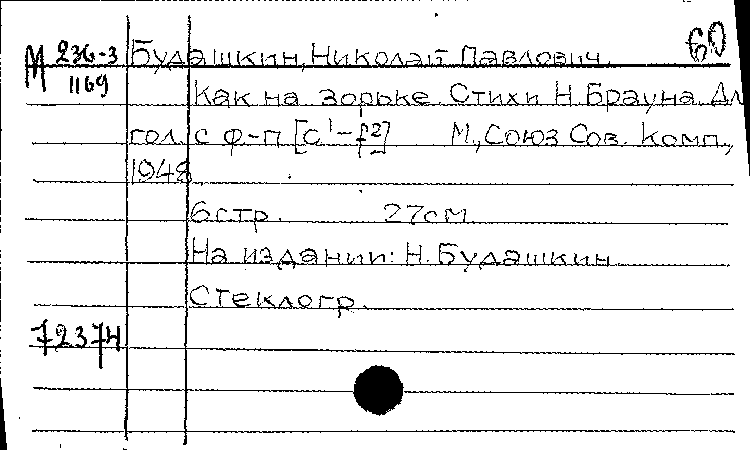 М 236-3
1169
60
Будашкин, Николай Павлович.
Как на зорьке. Стихи Н. Брауна. Дл
гол. с ф-п [c¹-f²] М., Союз Сов. Комп.,
1948
6 стр. 27 см
На издании: Н. Будашкин.
Стеклогр.
72374